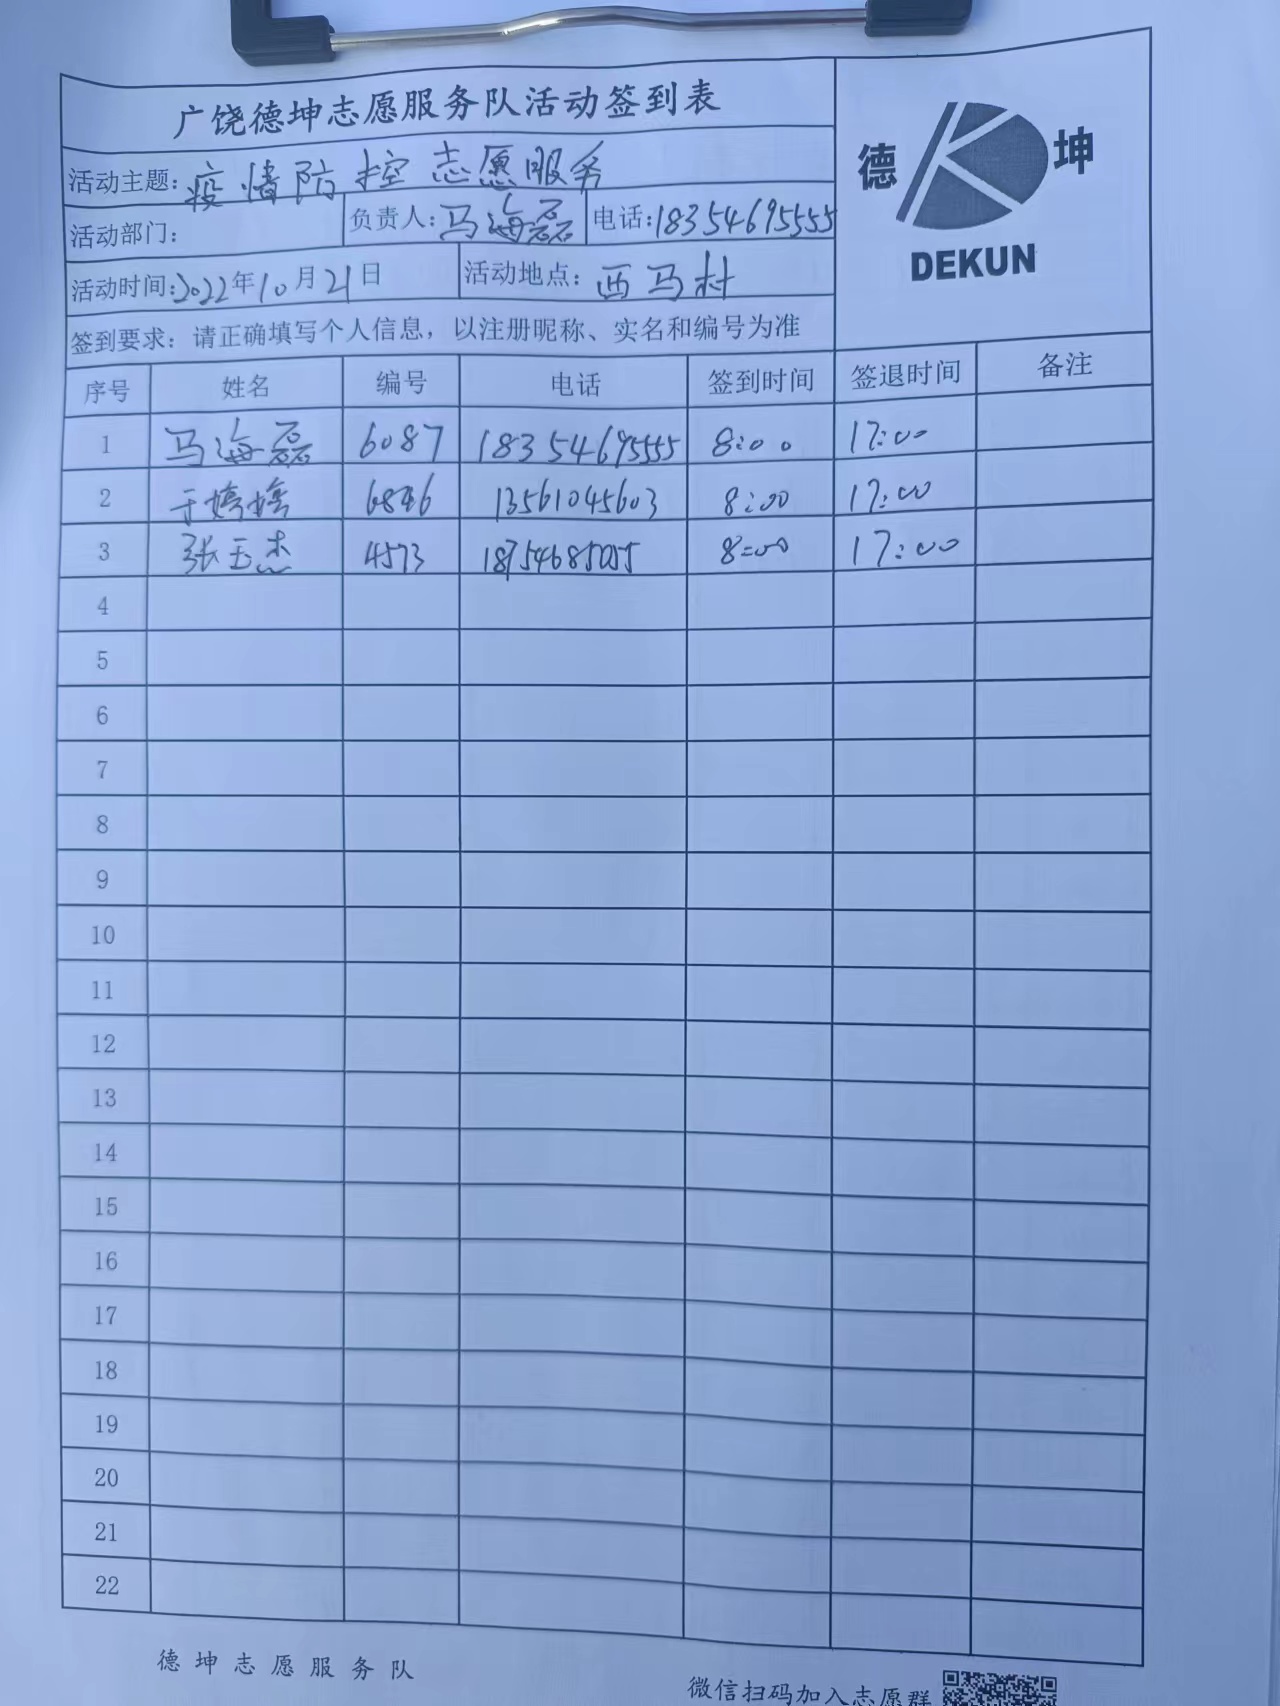 广饶德坤志愿服务队活动签到表
德 坤
DEKUN
活动主题：疫情防控志愿服务
活动部门： 负责人：马海磊 电话：18354695555
活动时间：2022年10月21日 活动地点：西马村
签到要求：请正确填写个人信息，以注册昵称、实名和编号为准
序号 姓名 编号 电话 签到时间 签退时间 备注
1 马海磊 6087 18354695555 8:00 17:00
2 于婷婷 6846 13561045603 8:00 17:00
3 张玉杰 4573 18754685055 8:00 17:00
4
5
6
7
8
9
10
11
12
13
14
15
16
17
18
19
20
21
22
德坤志愿服务队
微信扫码加入志愿群